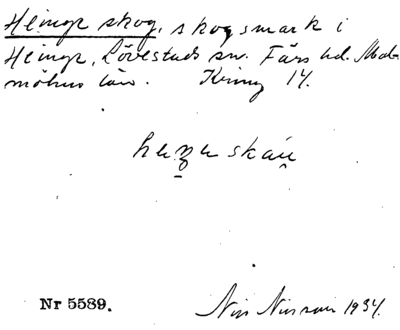 Heinge skog, skogsmark i
Heinge, Lövestads sn. Färs hd. Mal-
möhus län. 14.
Nr 5589.
Nils Nilsson 1934.